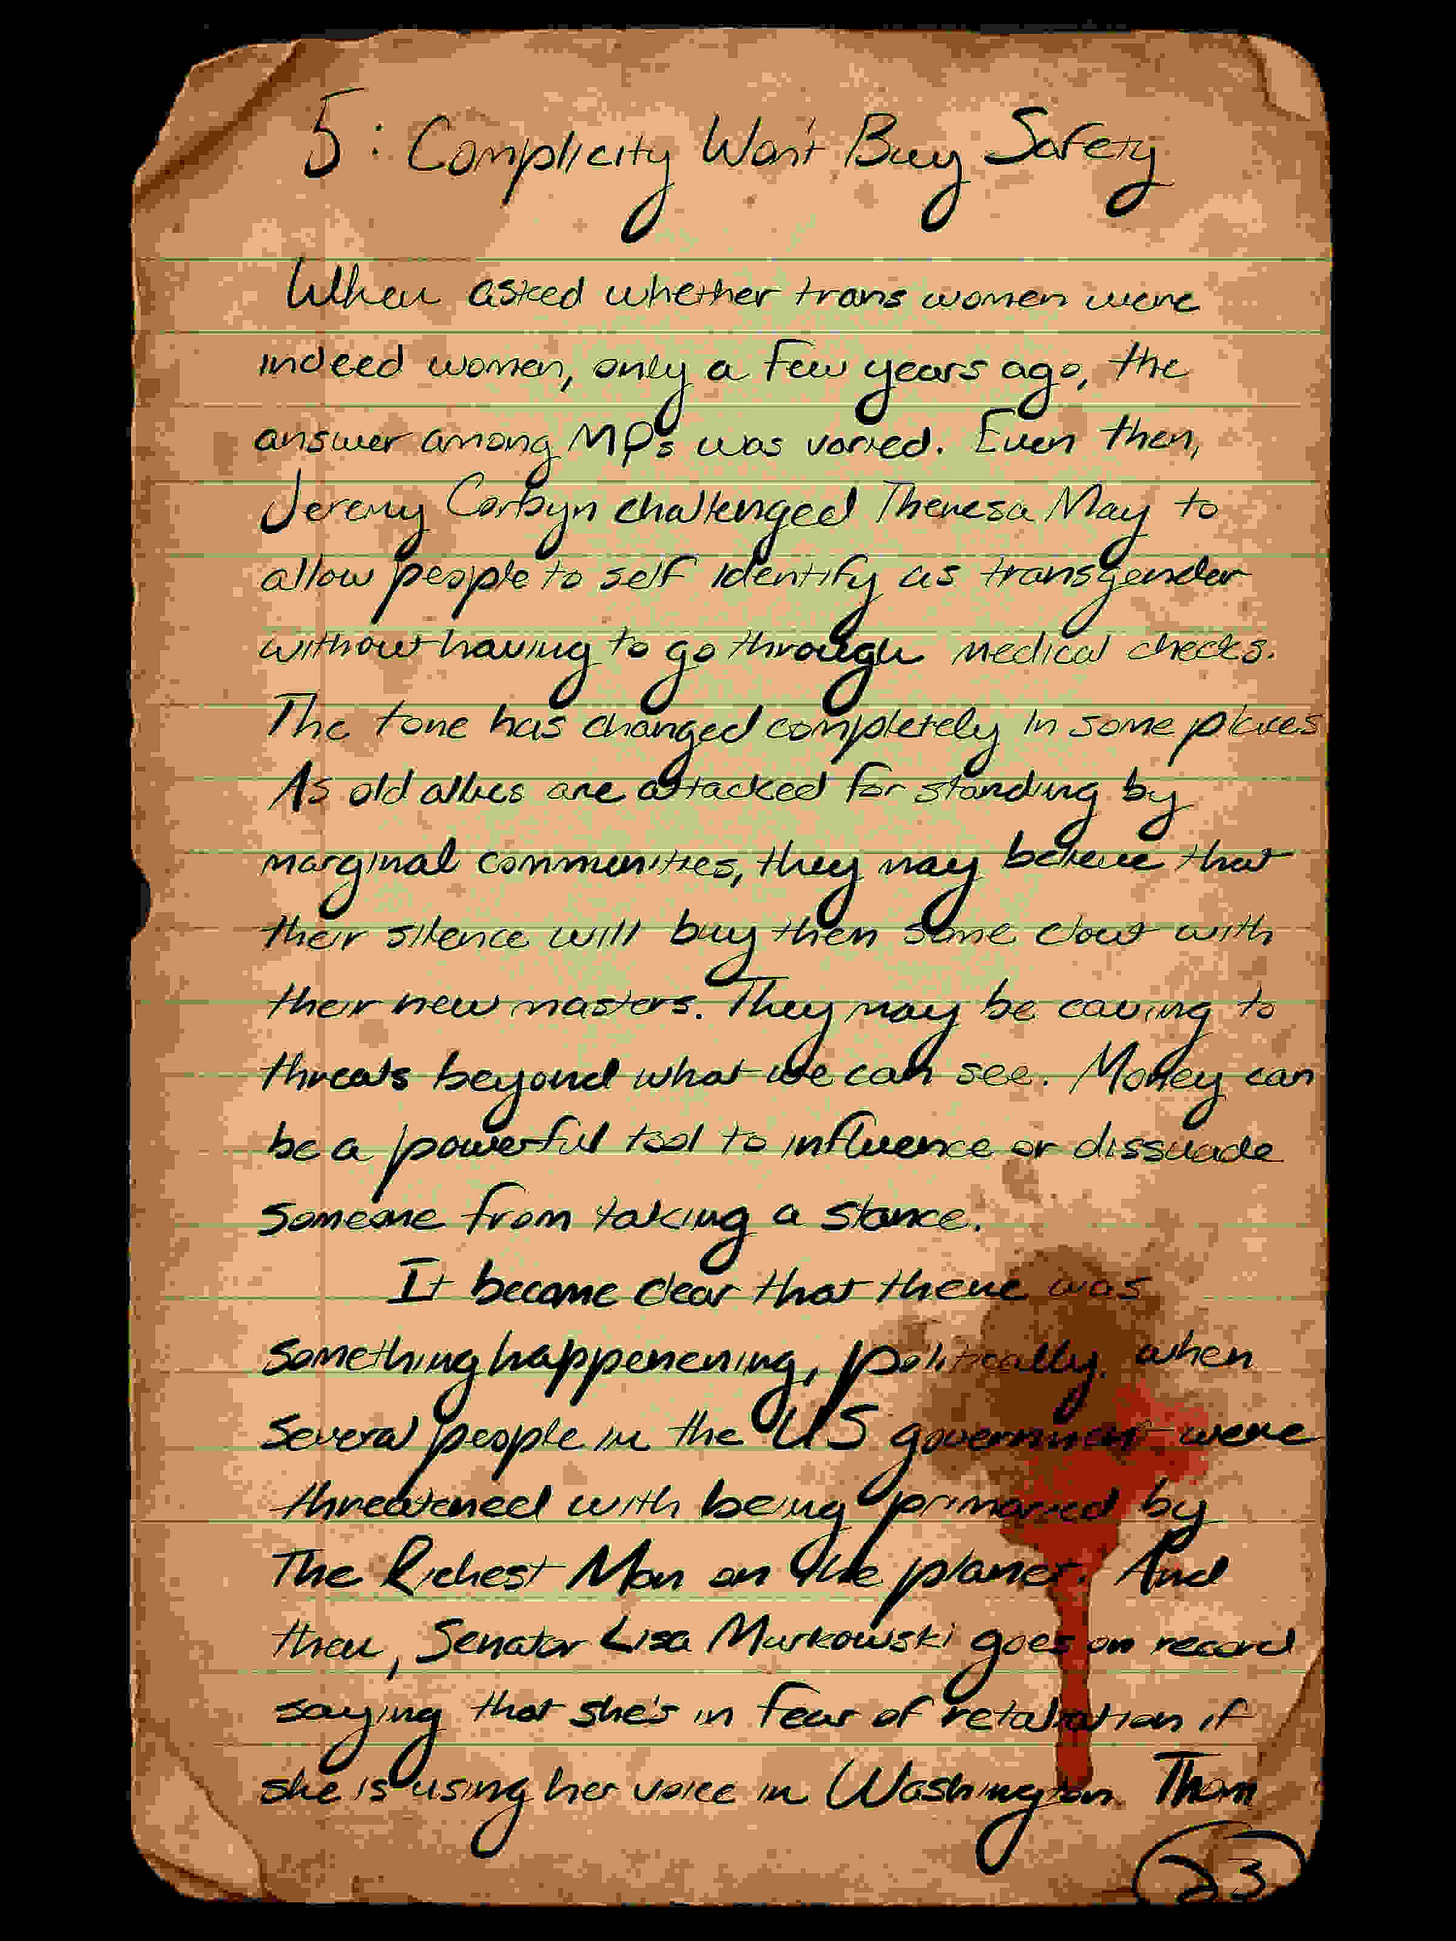 5: Complicity Won't Buy Safety
When asked whether trans women were
indeed women, only a few years ago, the
answer among MPs was varied. Even then,
Jeremy Corbyn challenged Theresa May to
allow people to self identify as transgender
without having to go through medical checks.
The tone has changed completely in some places
As old allies are attacked for standing by
marginal communities, they may believe that
their silence will buy them some clout with
their new masters. They may be caving to
threats beyond what we can see. Money can
be a powerful tool to influence or dissuade
someone from taking a stance.
It became clear that there was
something happenening, politically, when
several people in the US government were
threateneed with being primaried by
The Richest Man on the planet. And
then, Senator Lisa Murkowski goes on record
saying that she's in fear of retaliation if
she is using her voice in Washington. Thom
23